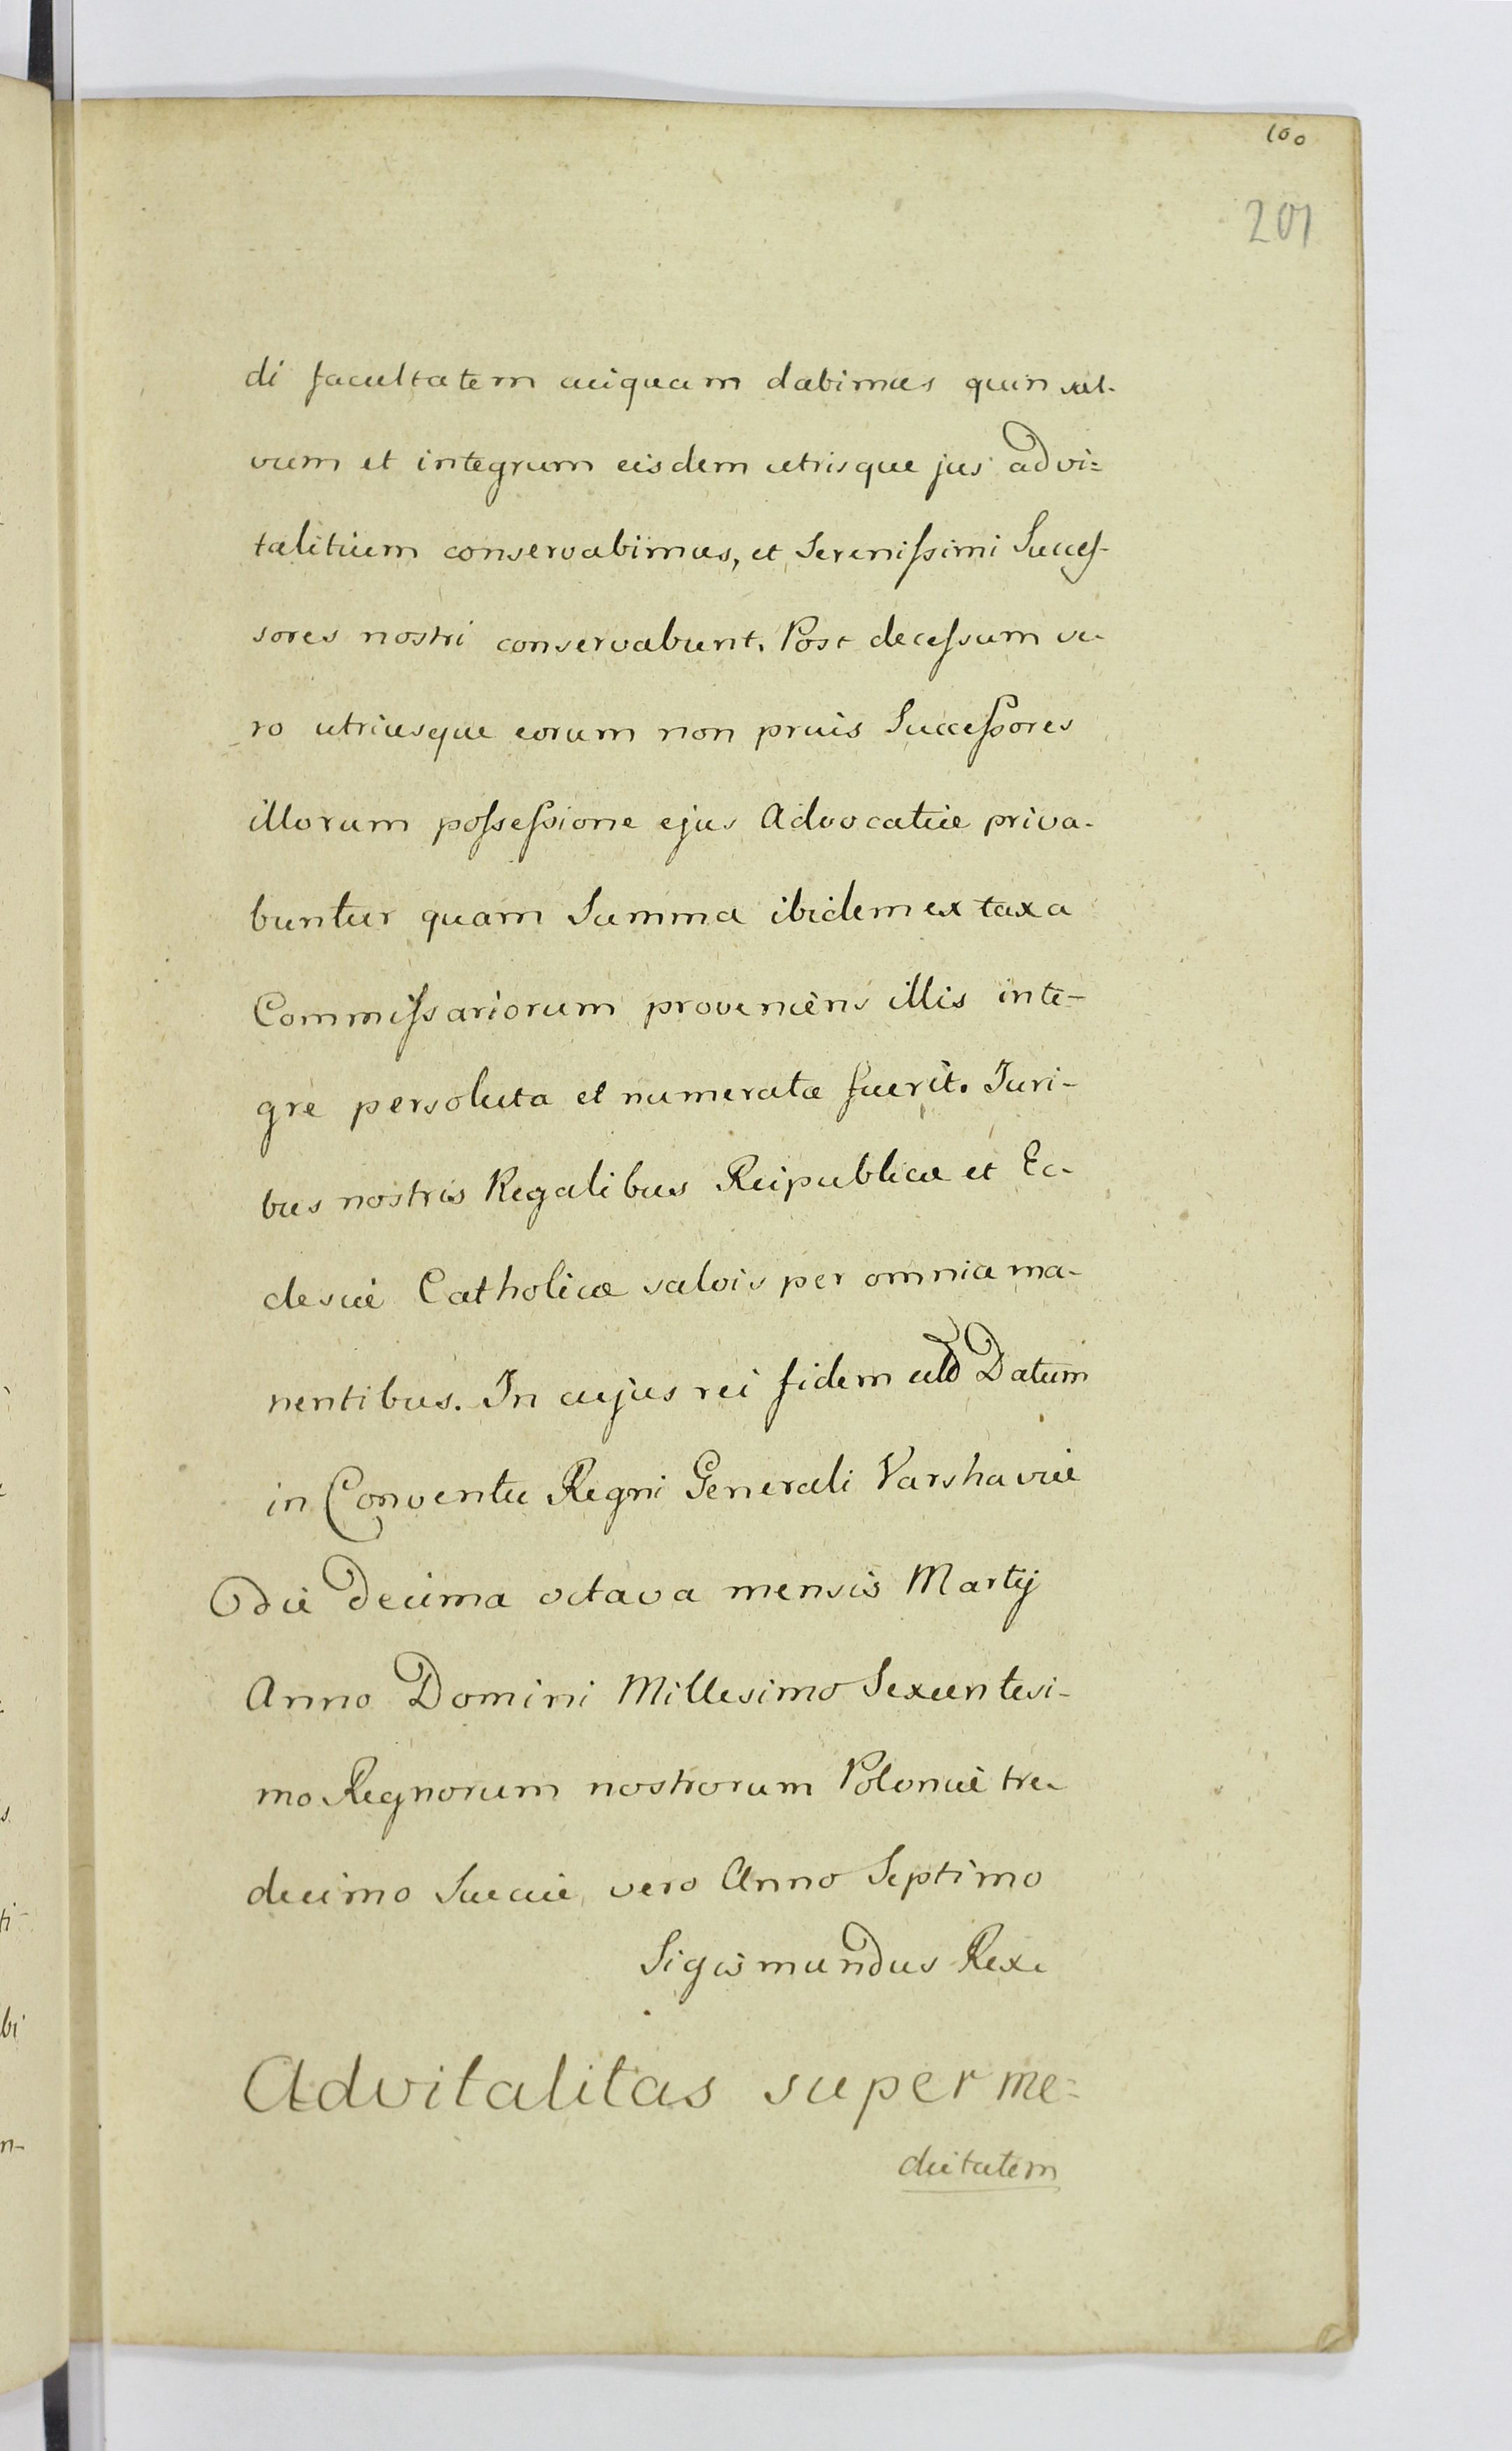 100
201
di facultatem cuiquam dabimus quin sal-
vum et integrum eisdem utrisque jus advi=
talitium conservabimus, et Serenissimi Succes-
sores nostri conservabunt. Post decessum ve-
ro utriusque eorum non prius Successores
illorum possessione ejus Advocatiæ priva-
buntur quam Summa ibidem ex taxa
Commissariorum proveniens illis inte-
gre persoluta et numerata fuerit. Juri-
bus nostris Regalibus Reipublicæ et Ec-
clesiæ Catholicæ salvis per omnia ma-
nentibus. In cujus rei fidem Datum
in Conventu Regni Generali Varshaviæ
die decima octava mensis Martij
Anno Domini Millesimo Sexcentesi-
mo Regnorum nostrorum Poloniæ tre-
decimo Sueciæ vero Anno Septimo
Sigismundus Rex.
Advitalitas super me=
dietatem